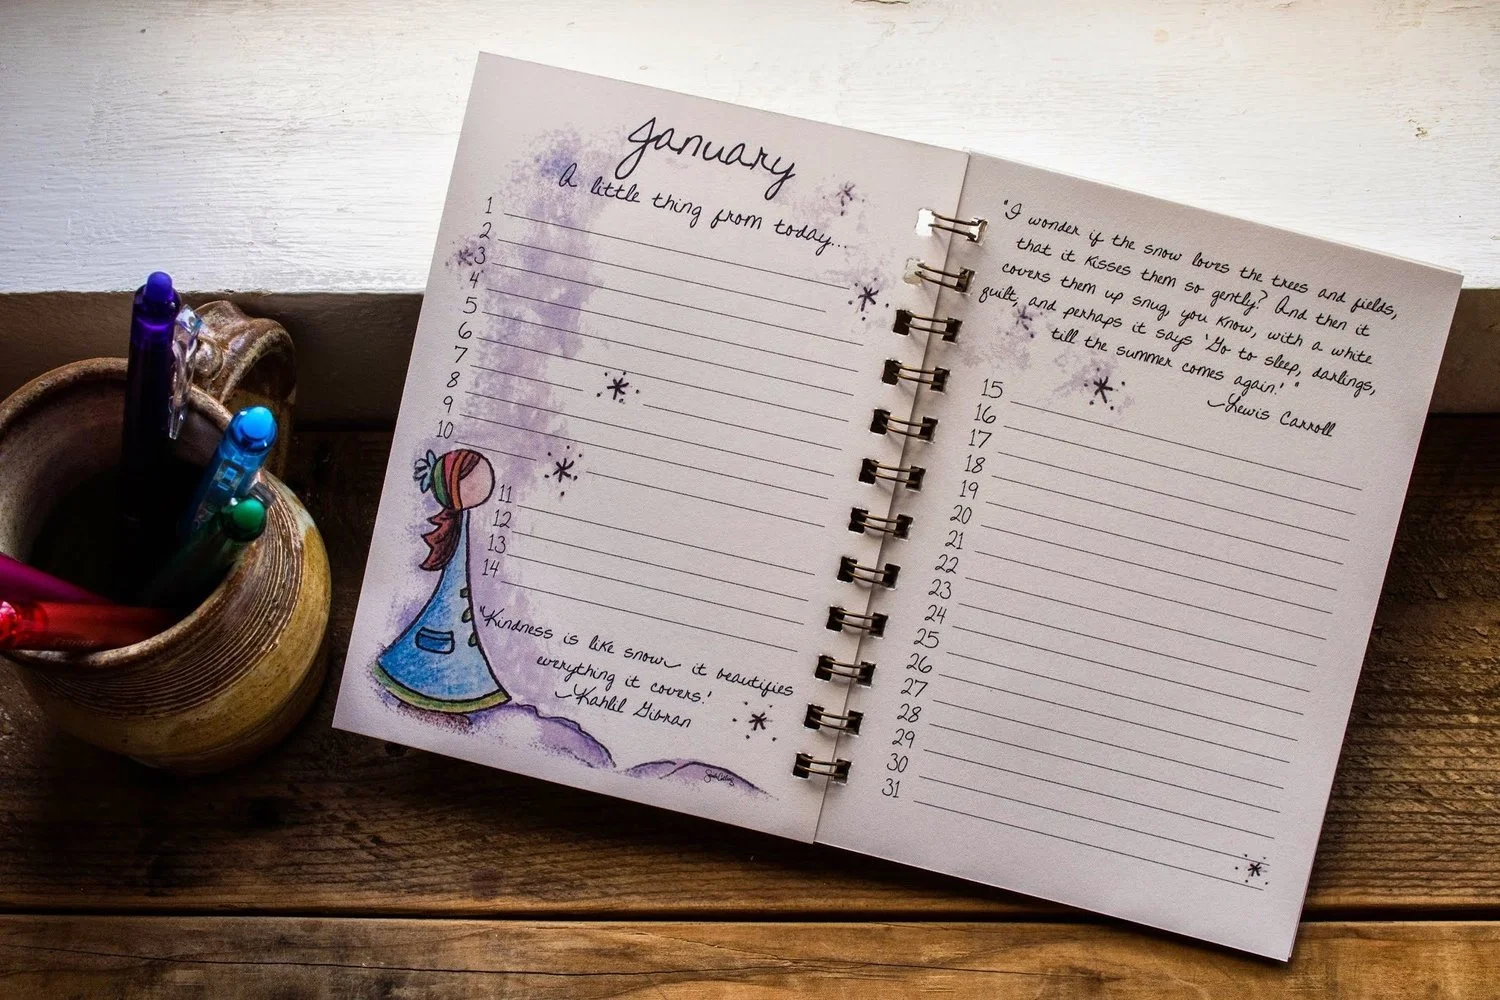 January
A little thing from today...
1
2
3
4
5
6
7
8
9
10
11
12
13
14
"Kindness is like snow~ it beautifies
everything it covers!
~Kahlil Gibran
"I wonder if the snow loves the trees and fields,
that it kisses them so gently? And then it
covers them up snug, you know, with a white
quilt, and perhaps it says 'Go to sleep, darlings,
till the summer comes again!'"
~Lewis Carroll
15
16
17
18
19
20
21
22
23
24
25
26
27
28
29
30
31